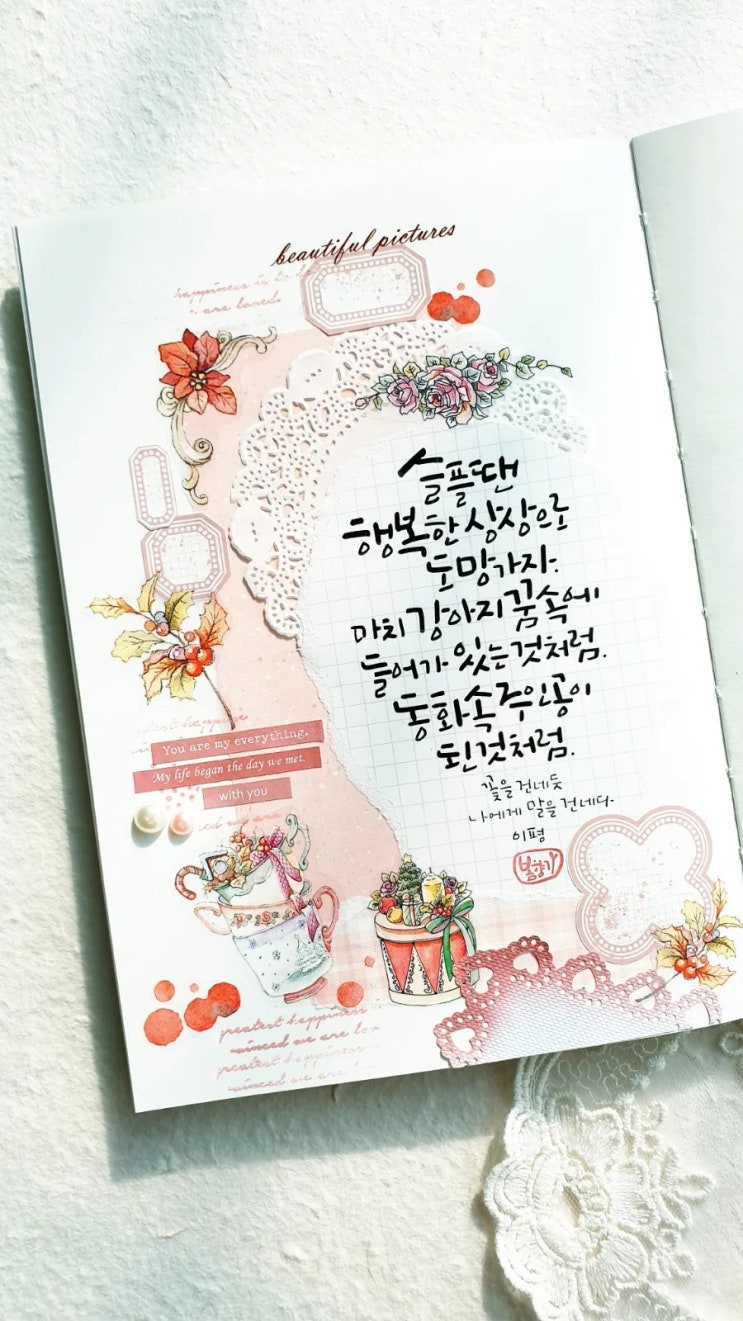 beautiful pictures
happiness is to be
are loved
슬플땐
행복한 상상으로
도망가자.
마치 강아지 꿈속에
들어가 있는것처럼.
동화속 주인공이
된것처럼.
꽃을 건네듯
나에게 말을 건네다-
이평
봄향기
You are my everything.
My life began the day we met.
with you
greatest happiness
vinced we are lov
greatest happiness
vinced we are l